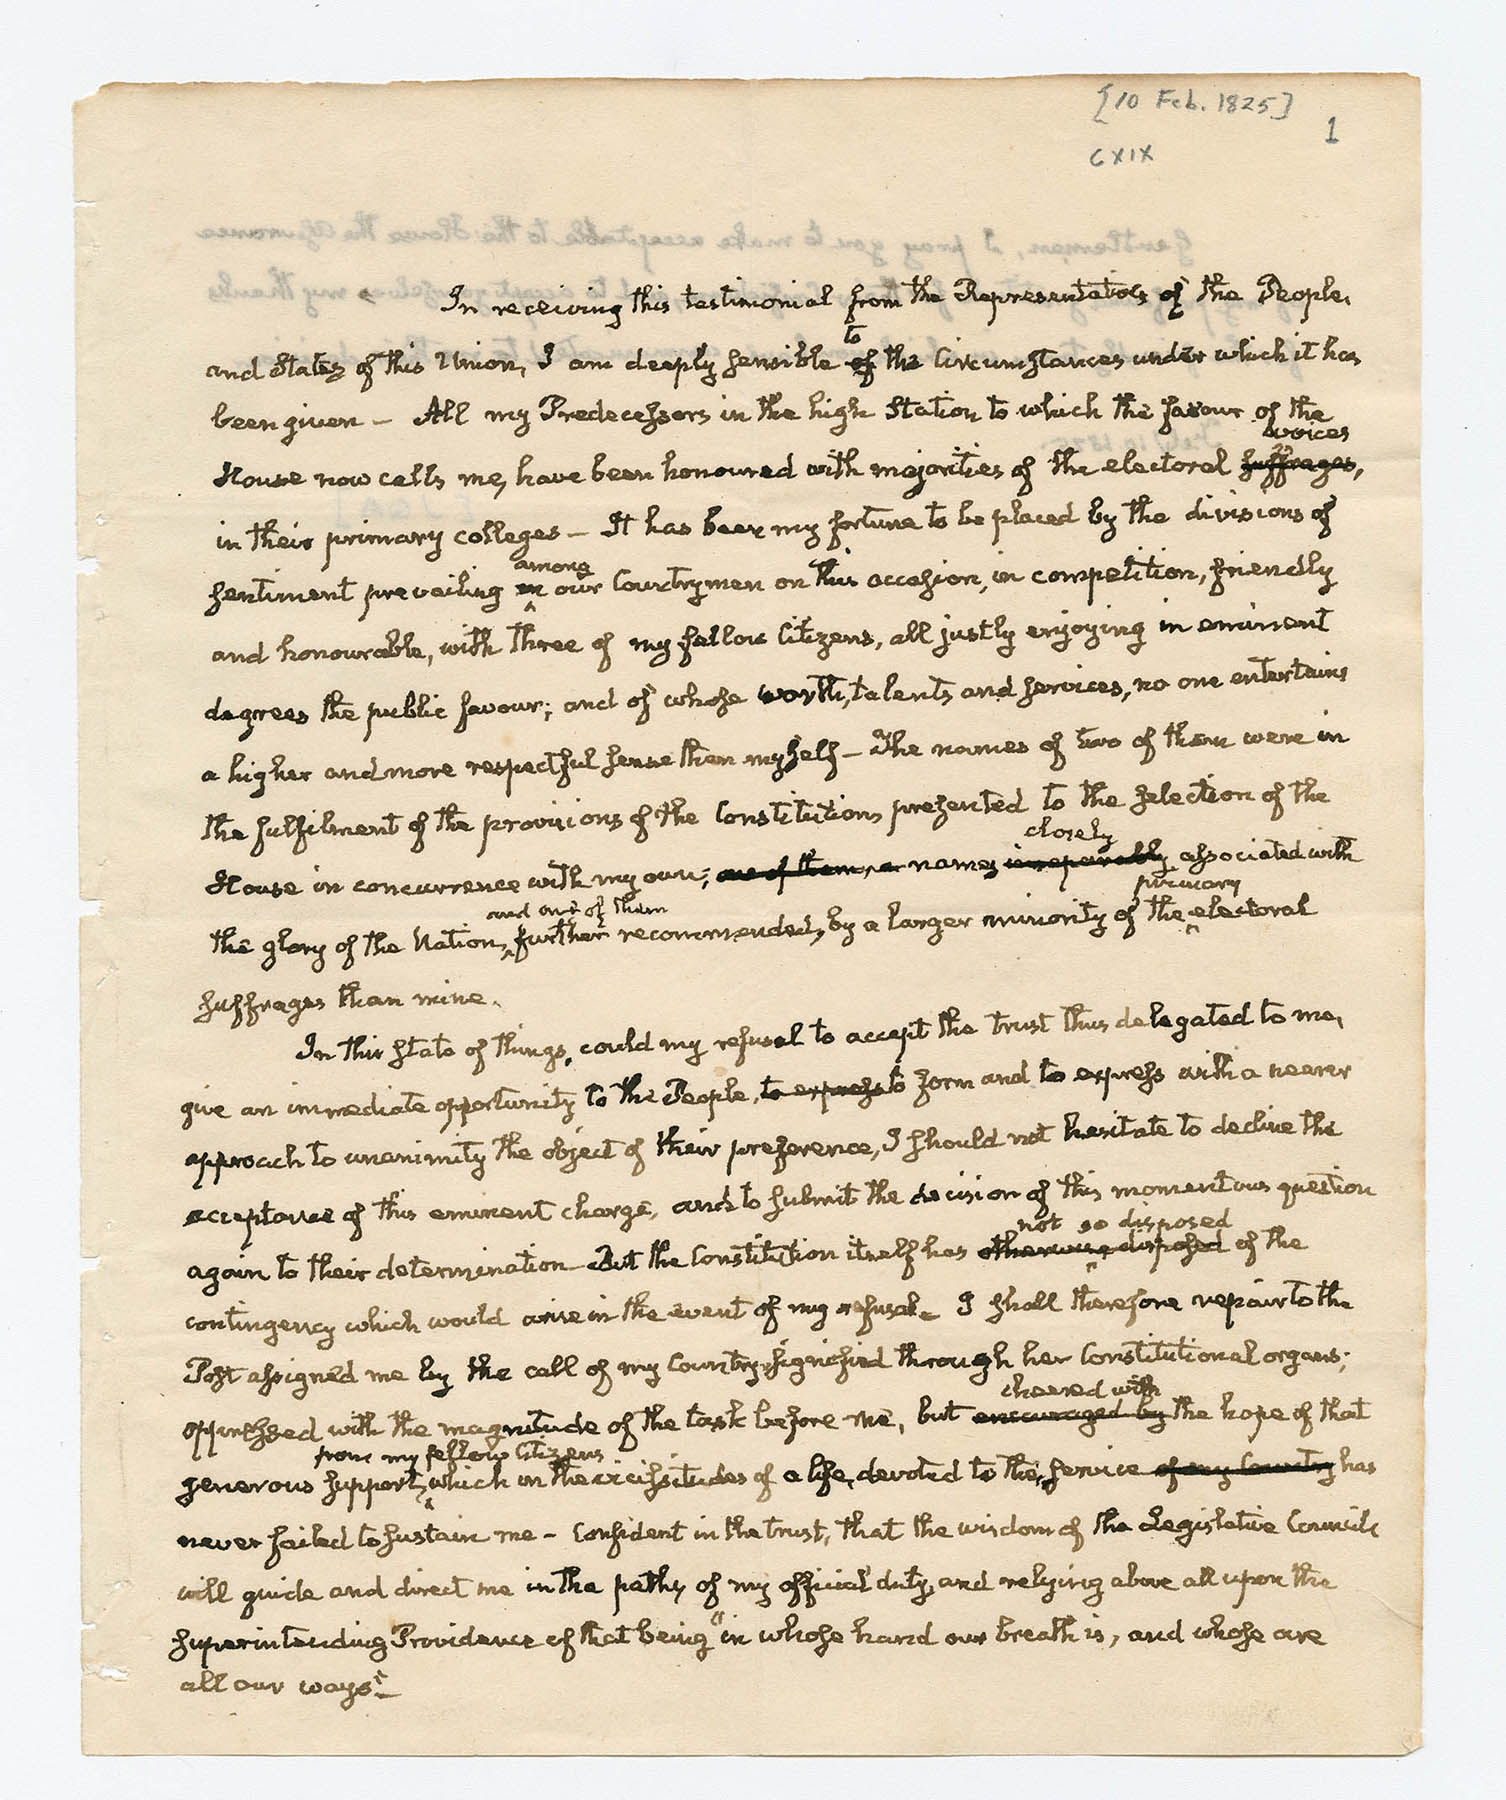 [10 Feb. 1825]
1
CXIX
In receiving this testimonial from the Representatives of the People,
to
and States of this Union, I am deeply sensible of the Circumstances under which it has
been given — All my Predecessors in the high Station to which the favour of the
voices
House now calls me, have been honoured with majorities of the electoral suffrages,
in their primary colleges — It has been my fortune to be placed by the divisions of
among
sentiment prevailing in our Countrymen on this occasion, in competition, friendly
and honourable, with three of my fellow Citizens, all justly enjoying in eminent
degrees the public favour; and of whose worth, talents and services, no one entertains
a higher and more respectful sense than myself — The names of two of them were in
the fulfilment of the provisions of the Constitution, presented to the selection of the
closely
House in concurrence with my own; one of them, a names inseparably associated with
and one of them primary
the glory of the Nation, further recommended, by a larger minority of the electoral
suffrages than mine.
In this state of things, could my refusal to accept the trust thus delegated to me,
give an immediate opportunity to the People, to express to form and to express with a nearer
approach to unanimity the object of their preference, I should not hesitate to decline the
acceptance of this eminent charge, and to submit the decision of this momentous question
not so disposed
again to their determination — But the Constitution itself has otherwise disposed of the
contingency which would arise in the event of my refusal. I shall therefore repair to the
Post assigned me by the call of my Country, signified through her Constitutional organs;
cheered with
oppressed with the magnitude of the task before me, but encouraged by the hope of that
from my fellow Citizens
generous support, which in the vicissitudes of a life, devoted to their service of my Country has
never failed to sustain me — Confident in the trust, that the wisdom of the Legislative Councils
will guide and direct me in the paths of my official duty, and relying above all upon the
superintending Providence of that being "in whose hand our breath is, and whose are
all our ways" —